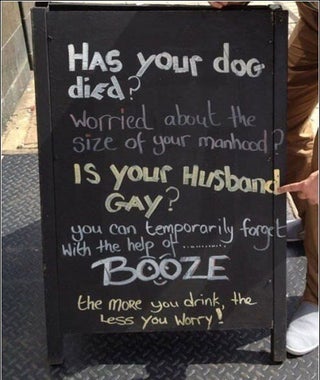 HAS your dog
died?
Worried about the
size of your manhood?
IS your Husband
GAY?
you can temporarily forget
with the help of ..........
BOOZE
the MORE you drink, the
LESS you Worry!